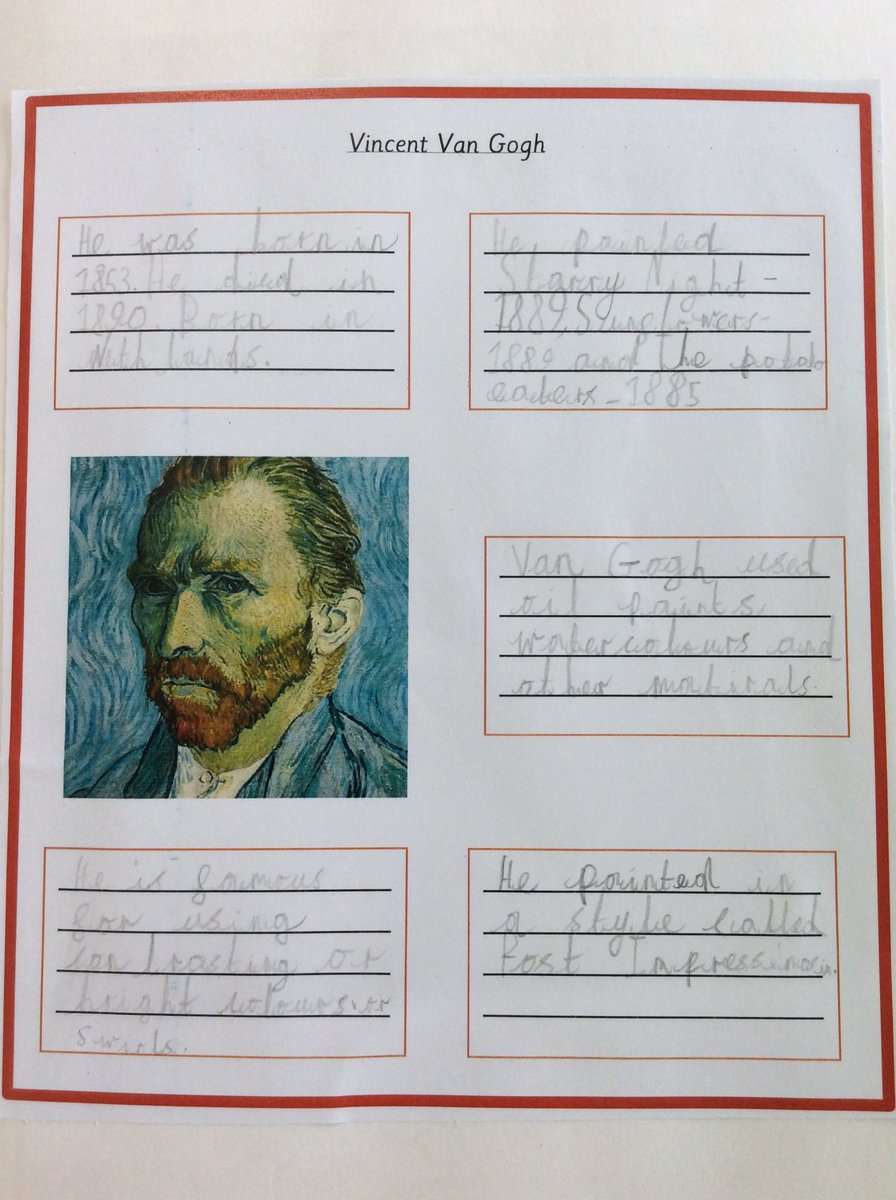 Vincent Van Gogh
He was born in
1853. He died in
1890. Born in
Nethlands.
He painted
Starry Night -
1889, Sunflowers -
1889 and the potato
eaters - 1885
Van Gogh used
oil paints
watercolours and
other matirals.
He is famous
for using
contrasting or
bright colours or
swirls.
He painted in
a style called
Post